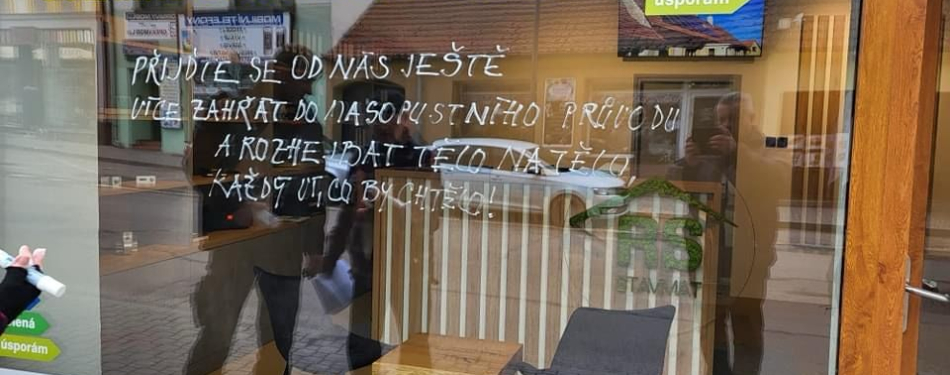 úsporám
MOBILNÍ TELEFONY
PŘIJĎTE SE OD NÁS JEŠTĚ
VÍCE ZAHŘÁT DO MASOPUSTNÍHO PRŮVODU
A ROZHEJBAT TĚLO NA TĚLO,
KAŽDÝ VÍ, CO BY CHTĚLO!
RS
TAMVATS
lená
úsporám